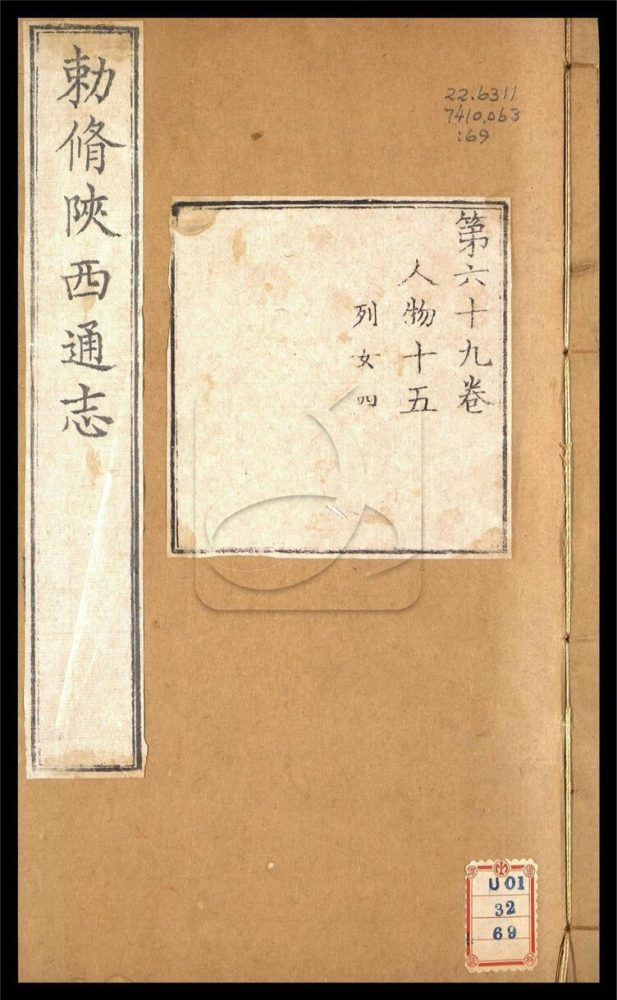 勅脩陝西通志
第六十九卷
人物十五
列女四
22.6311
7410.063
:69
U01
32
69